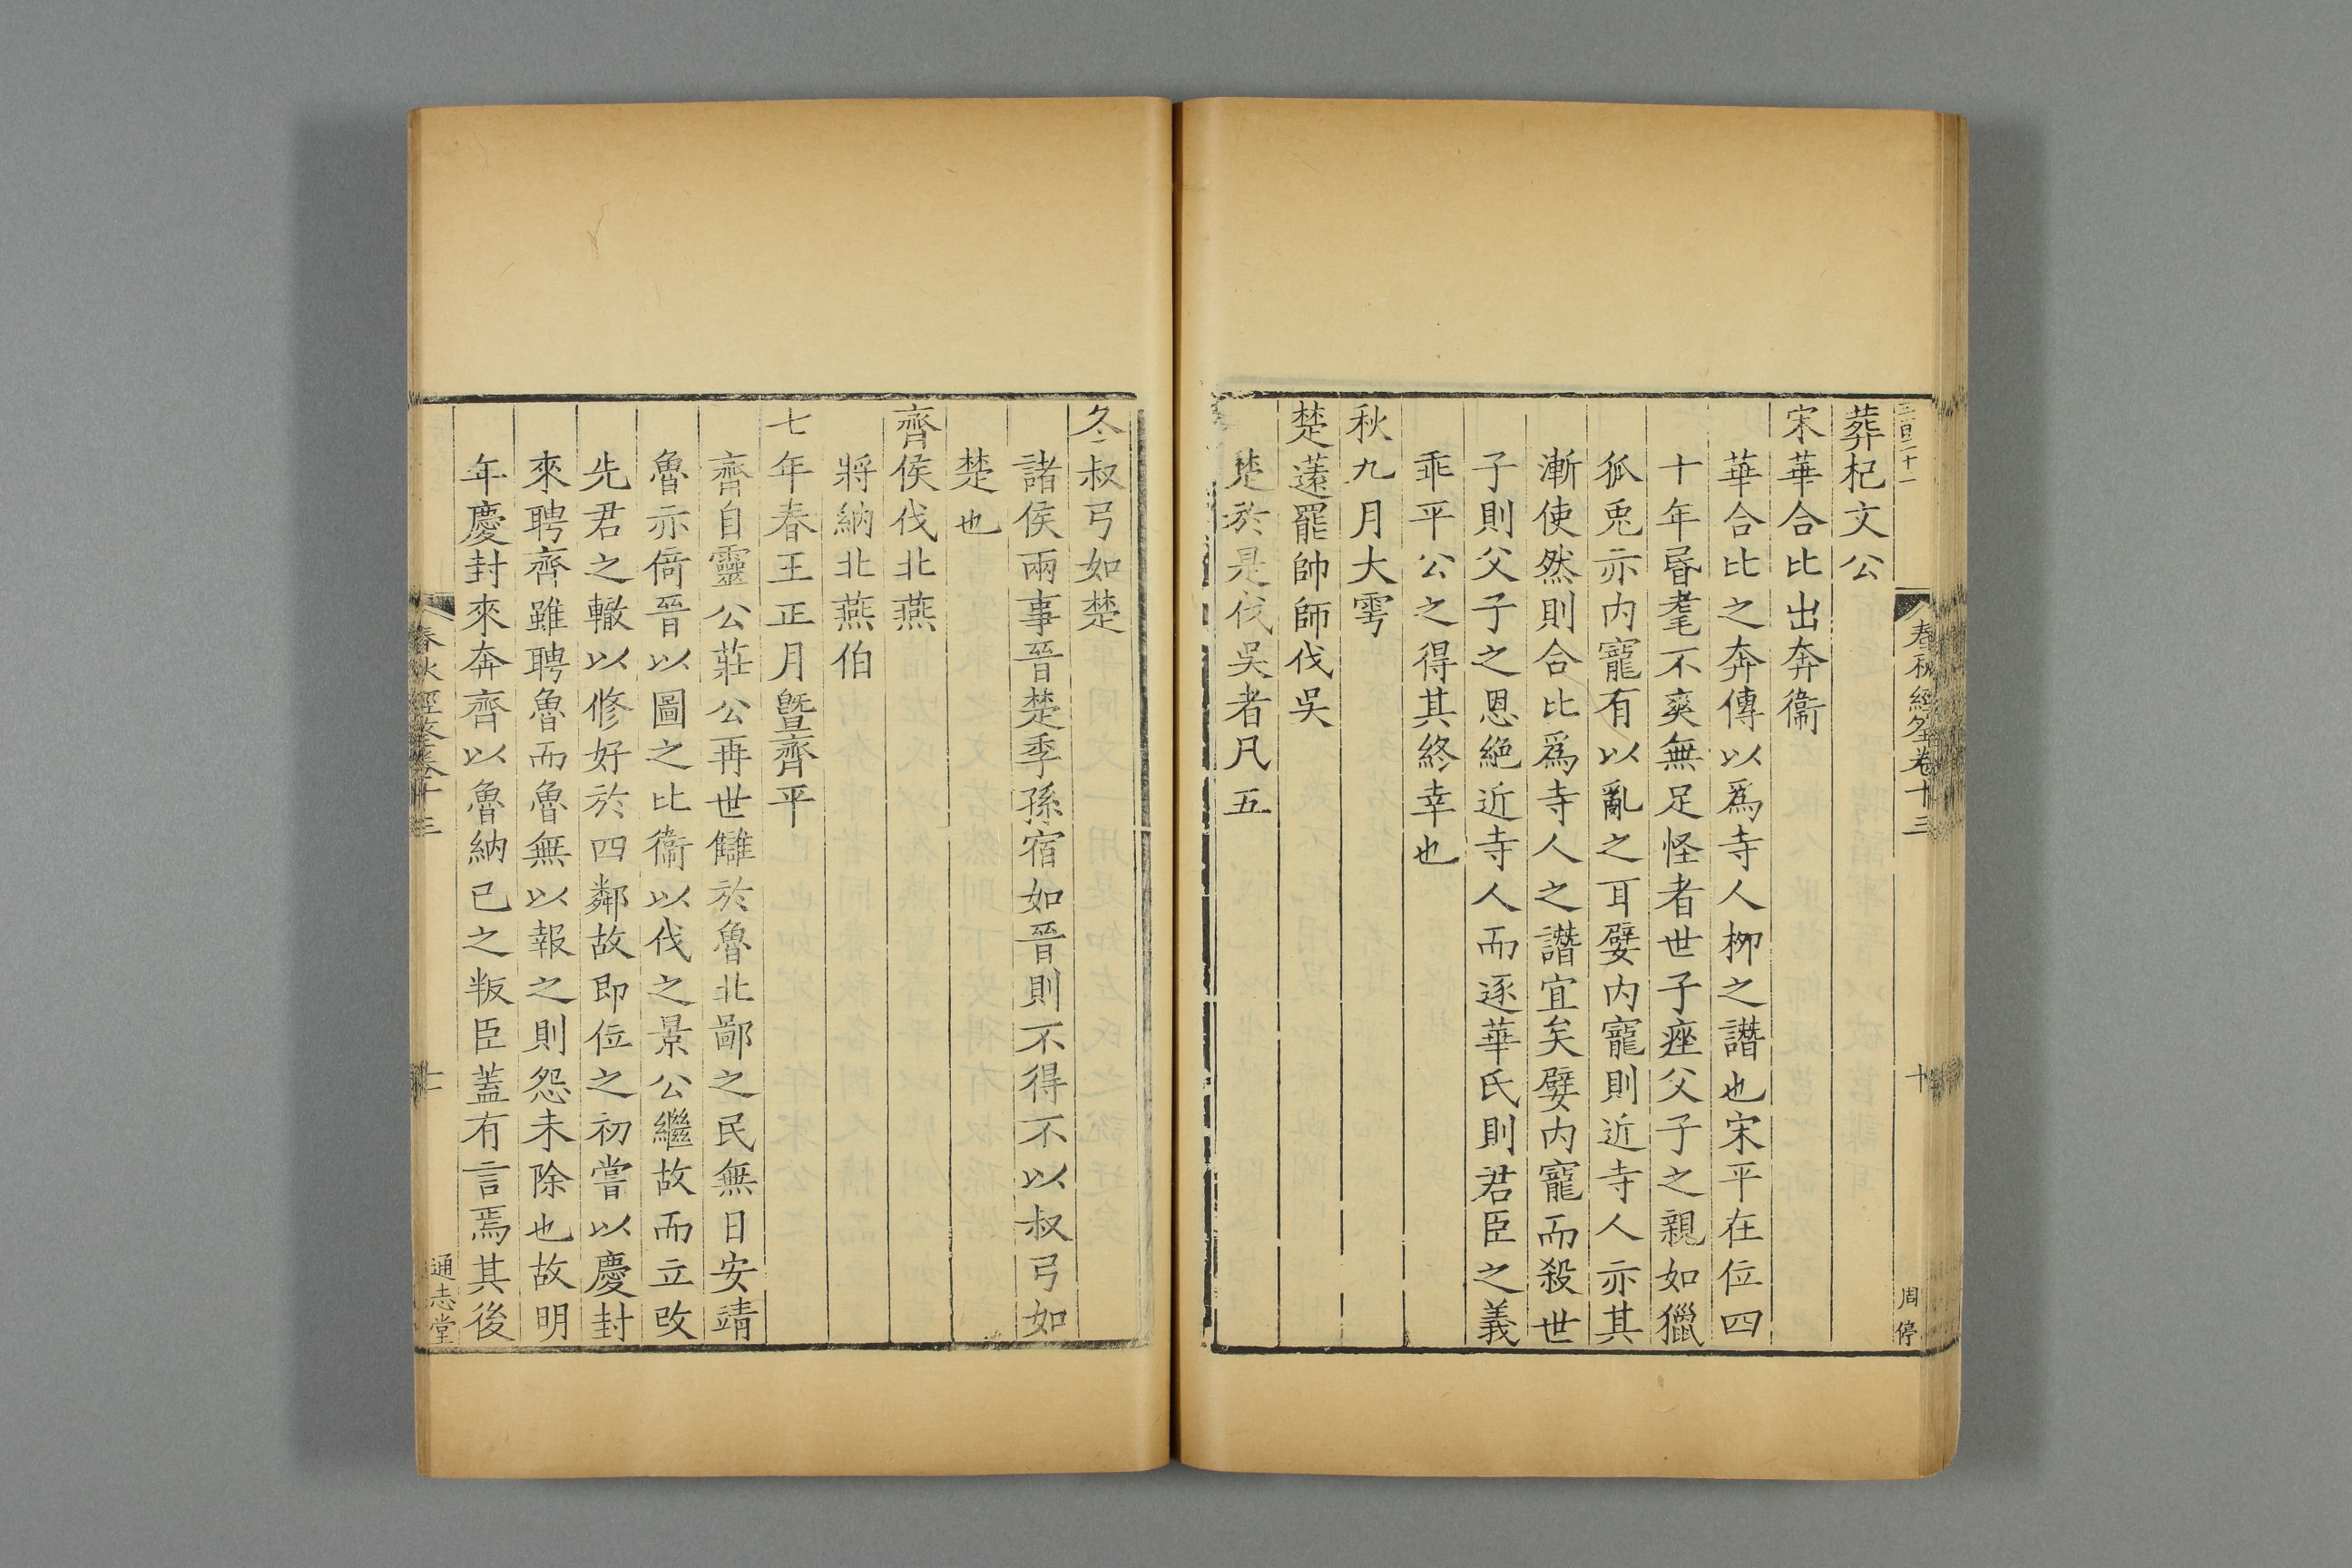 三百二十一
春秋經筌卷十三
十
周停
葬杞文公
宋華合比出奔衞
華合比之奔傳以爲寺人栁之譖也宋平在位四
十年昬耄不爽無足怪者世子痤父子之親如獵
狐兎亦内寵有以亂之耳嬖内寵則近寺人亦其
漸使然則合比爲寺人之譖宜矣嬖内寵而殺世
子則父子之恩絶近寺人而逐華氏則君臣之義
乖平公之得其終幸也
秋九月大雩
楚薳罷帥師伐吳
楚於是伐吳者凡五
冬叔弓如楚
諸侯兩事晉楚季孫宿如晉則不得不以叔弓如
楚也
齊侯伐北燕
將納北燕伯
七年春王正月曁齊平
齊自靈公莊公再世讎於魯北鄙之民無日安靖
魯亦倚晉以圖之比衞以伐之景公繼故而立改
先君之轍以修好於四鄰故即位之初嘗以慶封
來聘齊雖聘魯而魯無以報之則怨未除也故明
年慶封來奔齊以魯納已之叛臣蓋有言焉其後
春秋經筌卷十三
十一
通志堂